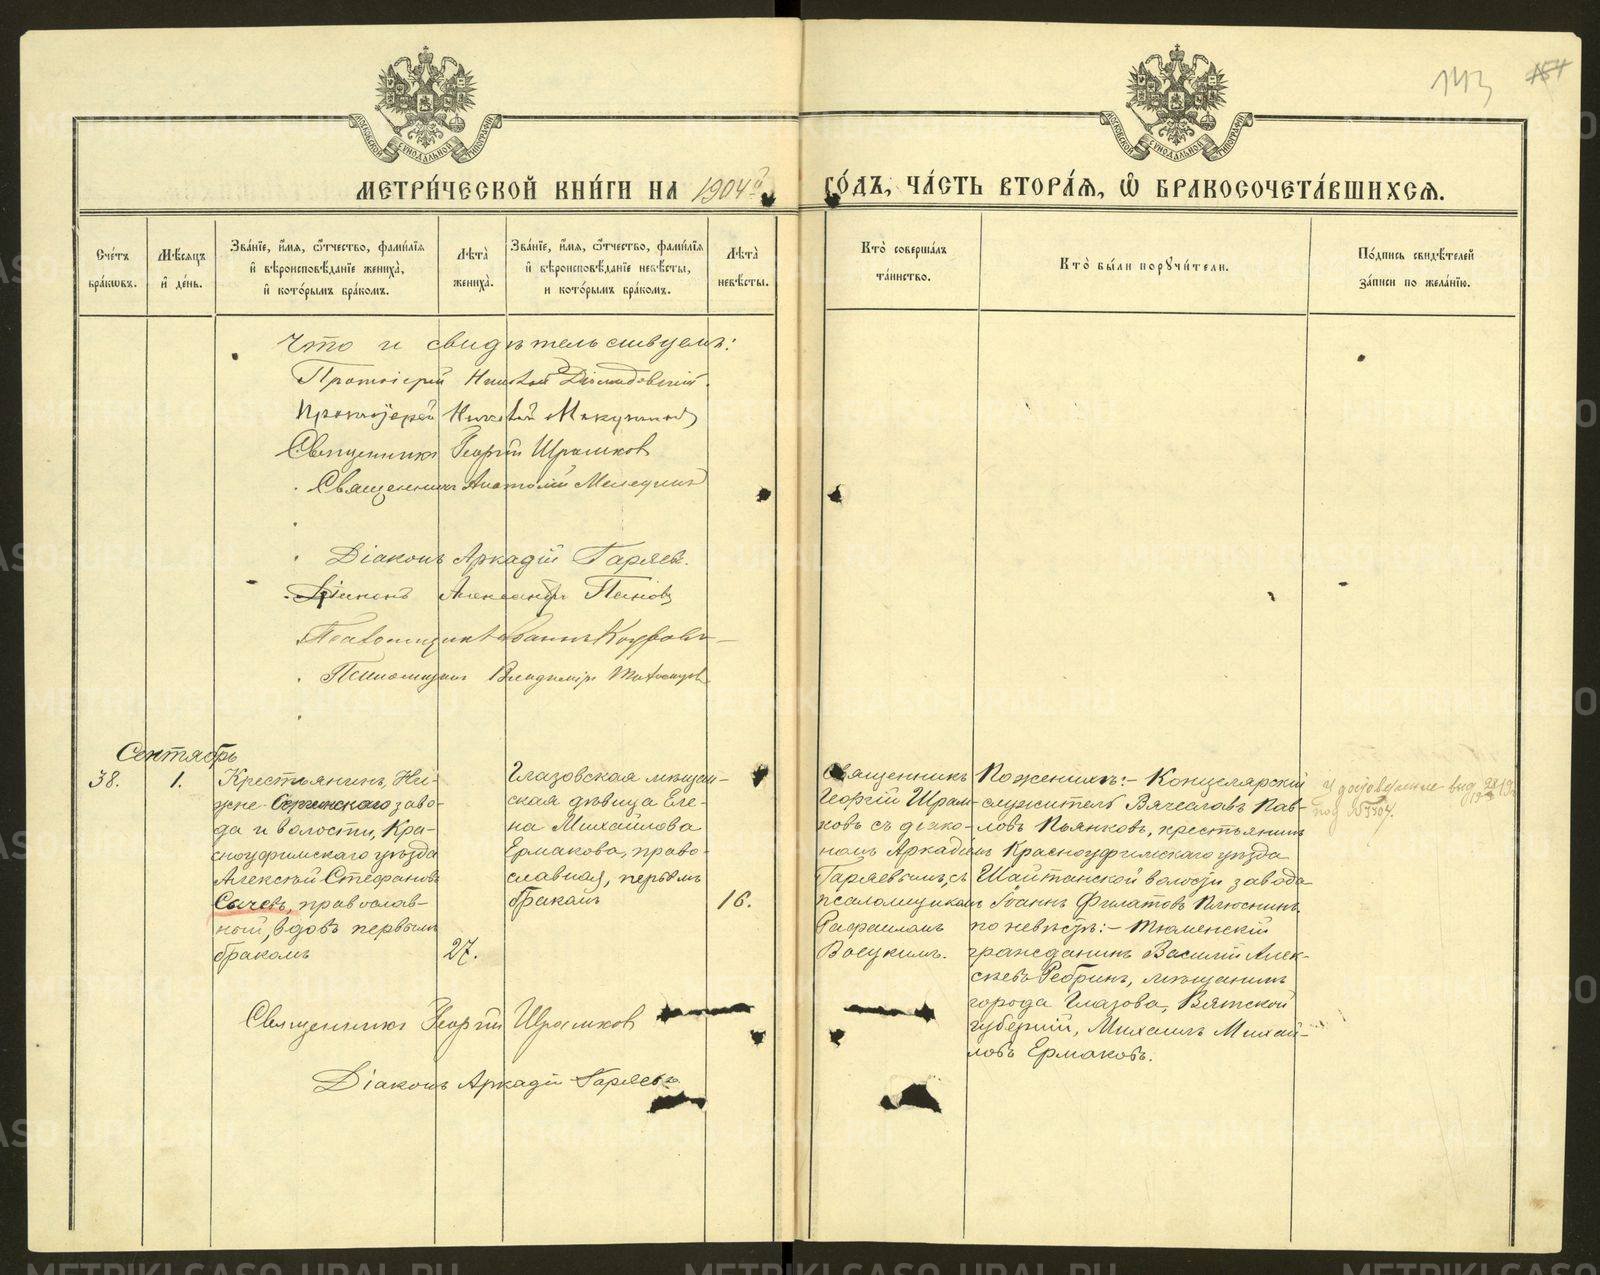 143
154
МОСКОВСКОЙ СѴНОДАЛЬНОЙ ТИПОГРАФІИ
МОСКОВСКОЙ СѴНОДАЛЬНОЙ ТИПОГРАФІИ
МЕТРИ́ЧЕСКОЙ КНИ́ГИ НА 1904й ГО́ДЪ, ЧА́СТЬ ВТОРА́Ѧ, Ѽ БРАКОСОЧЕТА́ВШИХСѦ.
Сче́тъ бра́кѡвъ.
Мѣ́сѧцъ и҆ де́нь.
Зва́нїе, и҆́мѧ, ѻ҆́тчество, фами́лїѧ и҆ вѣроисповѣ́данїе жениха̀, и҆ кото́рымъ бра́комъ.
Лѣта̀ жениха̀.
Зва́нїе, и҆́мѧ, ѻ҆́тчество, фами́лїѧ и҆ вѣроисповѣ́данїе невѣ́сты, и кото́рымъ бра́комъ.
Лѣта̀ невѣ́сты.
Кто̀ соверша́лъ та́инство.
Кто̀ бы́ли порꙋчи́тели.
По́дпись свидѣ́телей за́писи по жела́нїю.
Что и свидѣтельствуемъ:
Протоіерей Николай
Протоіерей Николай
Священникъ Георгій Шрамков
Священникъ Анатолій
Діаконъ Аркадій Гаряевъ.
Діаконъ Александръ Поповъ
Псаломщикъ Іоаннъ
Псаломщикъ Владиміръ
Сентябрь
38.
1.
Крестьянинъ Ни-
жне-Сергинскаго заво-
да и волости, Кра-
сноуфимскаго уѣзда
Алексѣй Стефановъ
Сычевъ, православ-
ный, вдовъ первымъ
бракомъ
27.
Глазовская мѣщан-
ская дѣвица Еле-
на Михайлова
Ермакова, право-
славная, первымъ
бракомъ
16.
Священникъ
Георгій Шрам-
ковъ съ діако-
номъ Аркадіемъ
Гаряевымъ, съ
псаломщикомъ
Рафаиломъ
По женихѣ:- Канцелярскій
служитель Вячеславъ Пав-
ловъ Пьянковъ, крестьянинъ
Красноуфимскаго уѣзда
Шайтанской волости завода
Іоаннъ Филатовъ Плюснинъ.
по невѣстѣ:- Тюменскій
гражданинъ Василій Алек-
сѣевъ Ребринъ, мѣщанинъ
города Глазова, Вятской
губерніи, Михаилъ Михай-
ловъ Ермаковъ.
Священникъ Георгій Шрамков
Діаконъ Аркадій Гаряевъ
METRIKI.GASO-URAL.RU